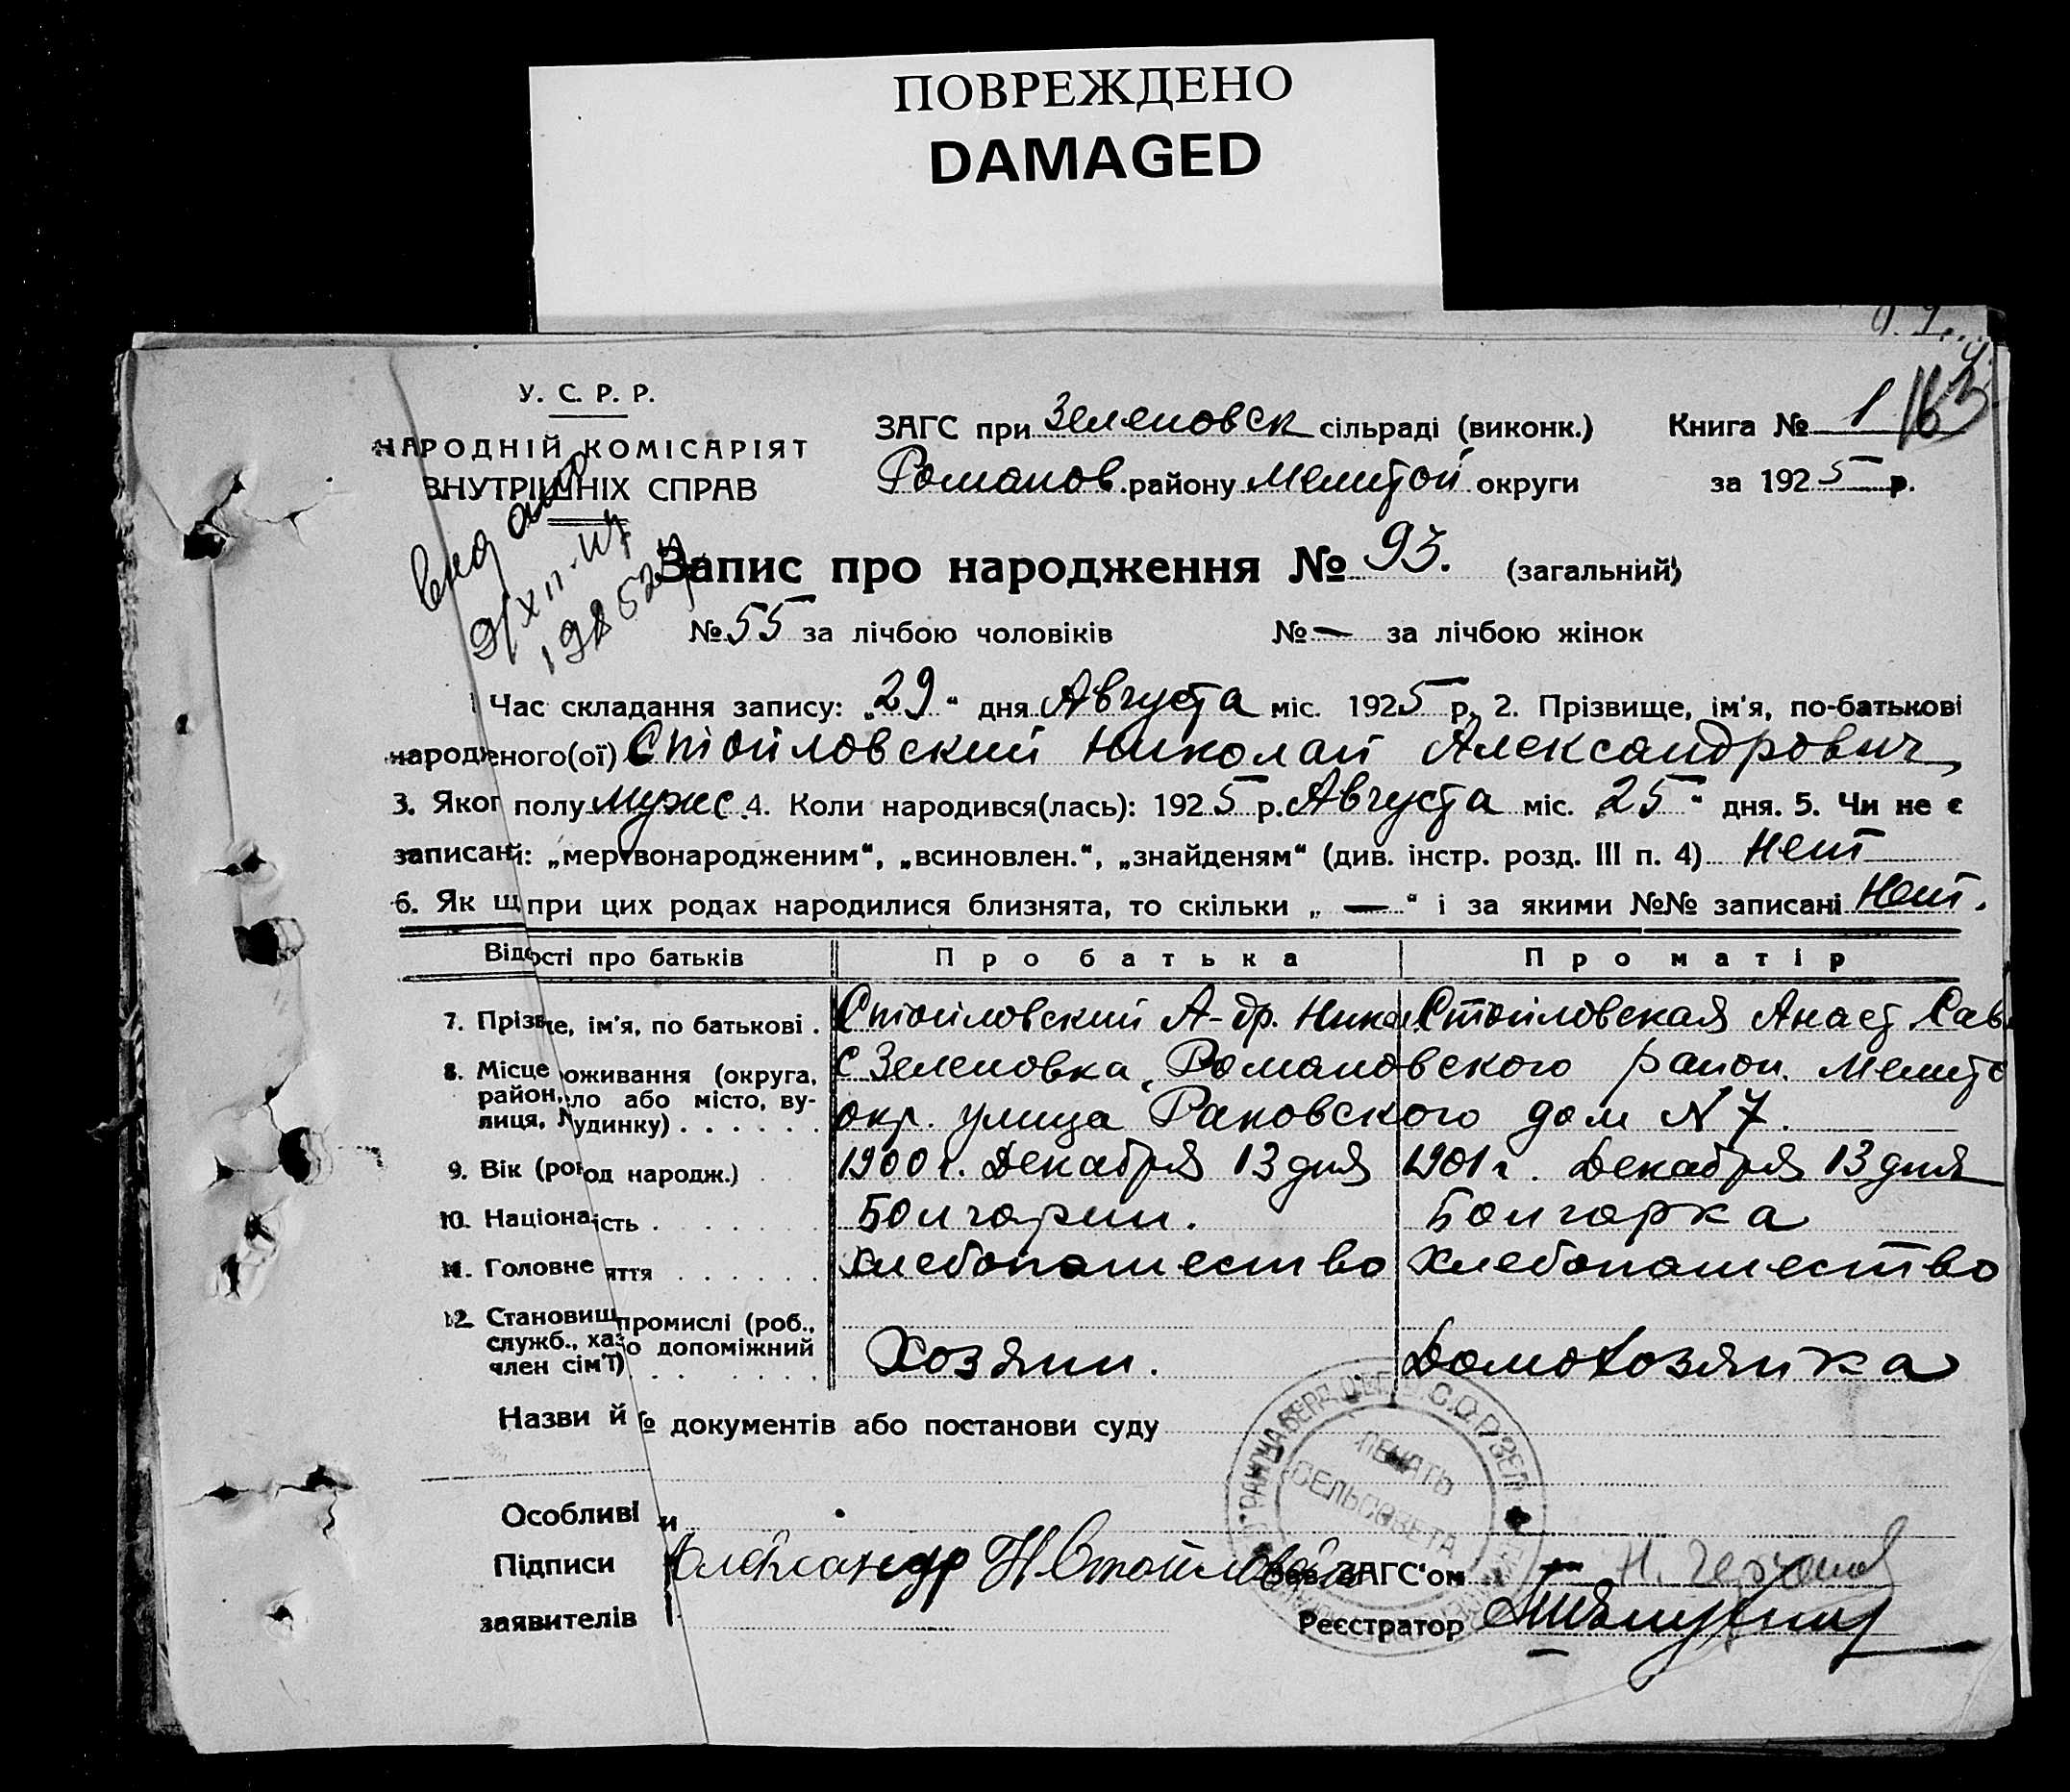 ПОВРЕЖДЕНО
DAMAGED
У. С. Р. Р.
НАРОДНІЙ КОМІСАРІЯТ
ВНУТРІШНІХ СПРАВ
ЗАГС при Зеленовск сільраді (виконк.) Книга № 1 163
Романов. району Мелитой округи за 1925 р.
Запис про народження № 93. (загальний)
№ 55 за лічбою чоловіків № — за лічбою жінок
Час складання запису: „29“ дня Августа міс. 1925 р. 2. Прізвище, ім'я, по-батькові
народженого(ої) Стойловский Николай Александрович
3. Яког полу мужс. 4. Коли народився(лась): 1925 р. Августа міс. „25“ дня. 5. Чи не є
записаний: „мертвонародженим“, „всиновлен.“, „знайденям“ (див. інстр. розд. III п. 4) Нет
6. Як щ при цих родах народилися близнята, то скільки „ — “ і за якими №№ записані Нет.
Відості про батьків Про батька Про матір
7. Прізвще, ім'я, по батькові . Стойловский А-др. Ник Стойловская Анаст Сав
8. Місце оживання (округа, с Зеленовка, Романовского район. Мелито
район, ло або місто, ву-
лиця, № удинку) . . . . . . окр. улица Раковского дом N 7.
9. Вік (рог од народж.) 1900 г. Декабря 13 дня 1901 г. Декабря 13 дня
10. Націона ість . Болгарин. Болгарка
11. Головне яття . . . . . . Хлебопашество Хлебопашество
12. Становищ промислі (роб.,
служб., хаз о допоміжний
член сім'ї) Хозяин. Домохозяйка
Назви й № документів або постанови суду
ПЕЧАТЬ СЕЛЬСОВЕТА
Особливі и
Підписи Александр Н Стойловский Зав. ЗАГС'ом
заявителів Реєстратор